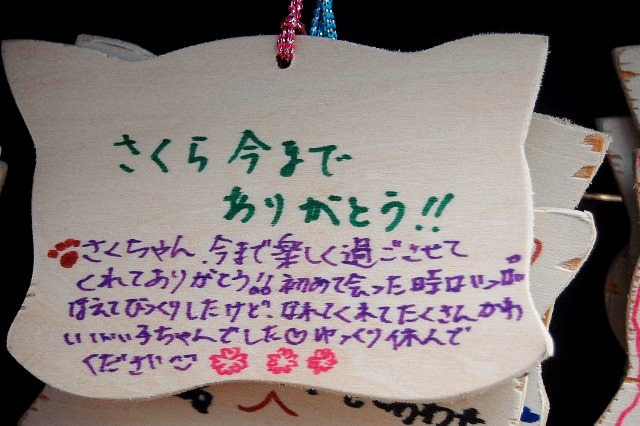 さくら 今まで
ありがとう!!
さくちゃん、今まで楽しく過ごさせて
くれてありがとう!! 初めて会った時は
ほえてびっくりしたけど、なれてくれてたくさんかわ
いいいい子ちゃんでした♡ ゆっくり休んで
ください